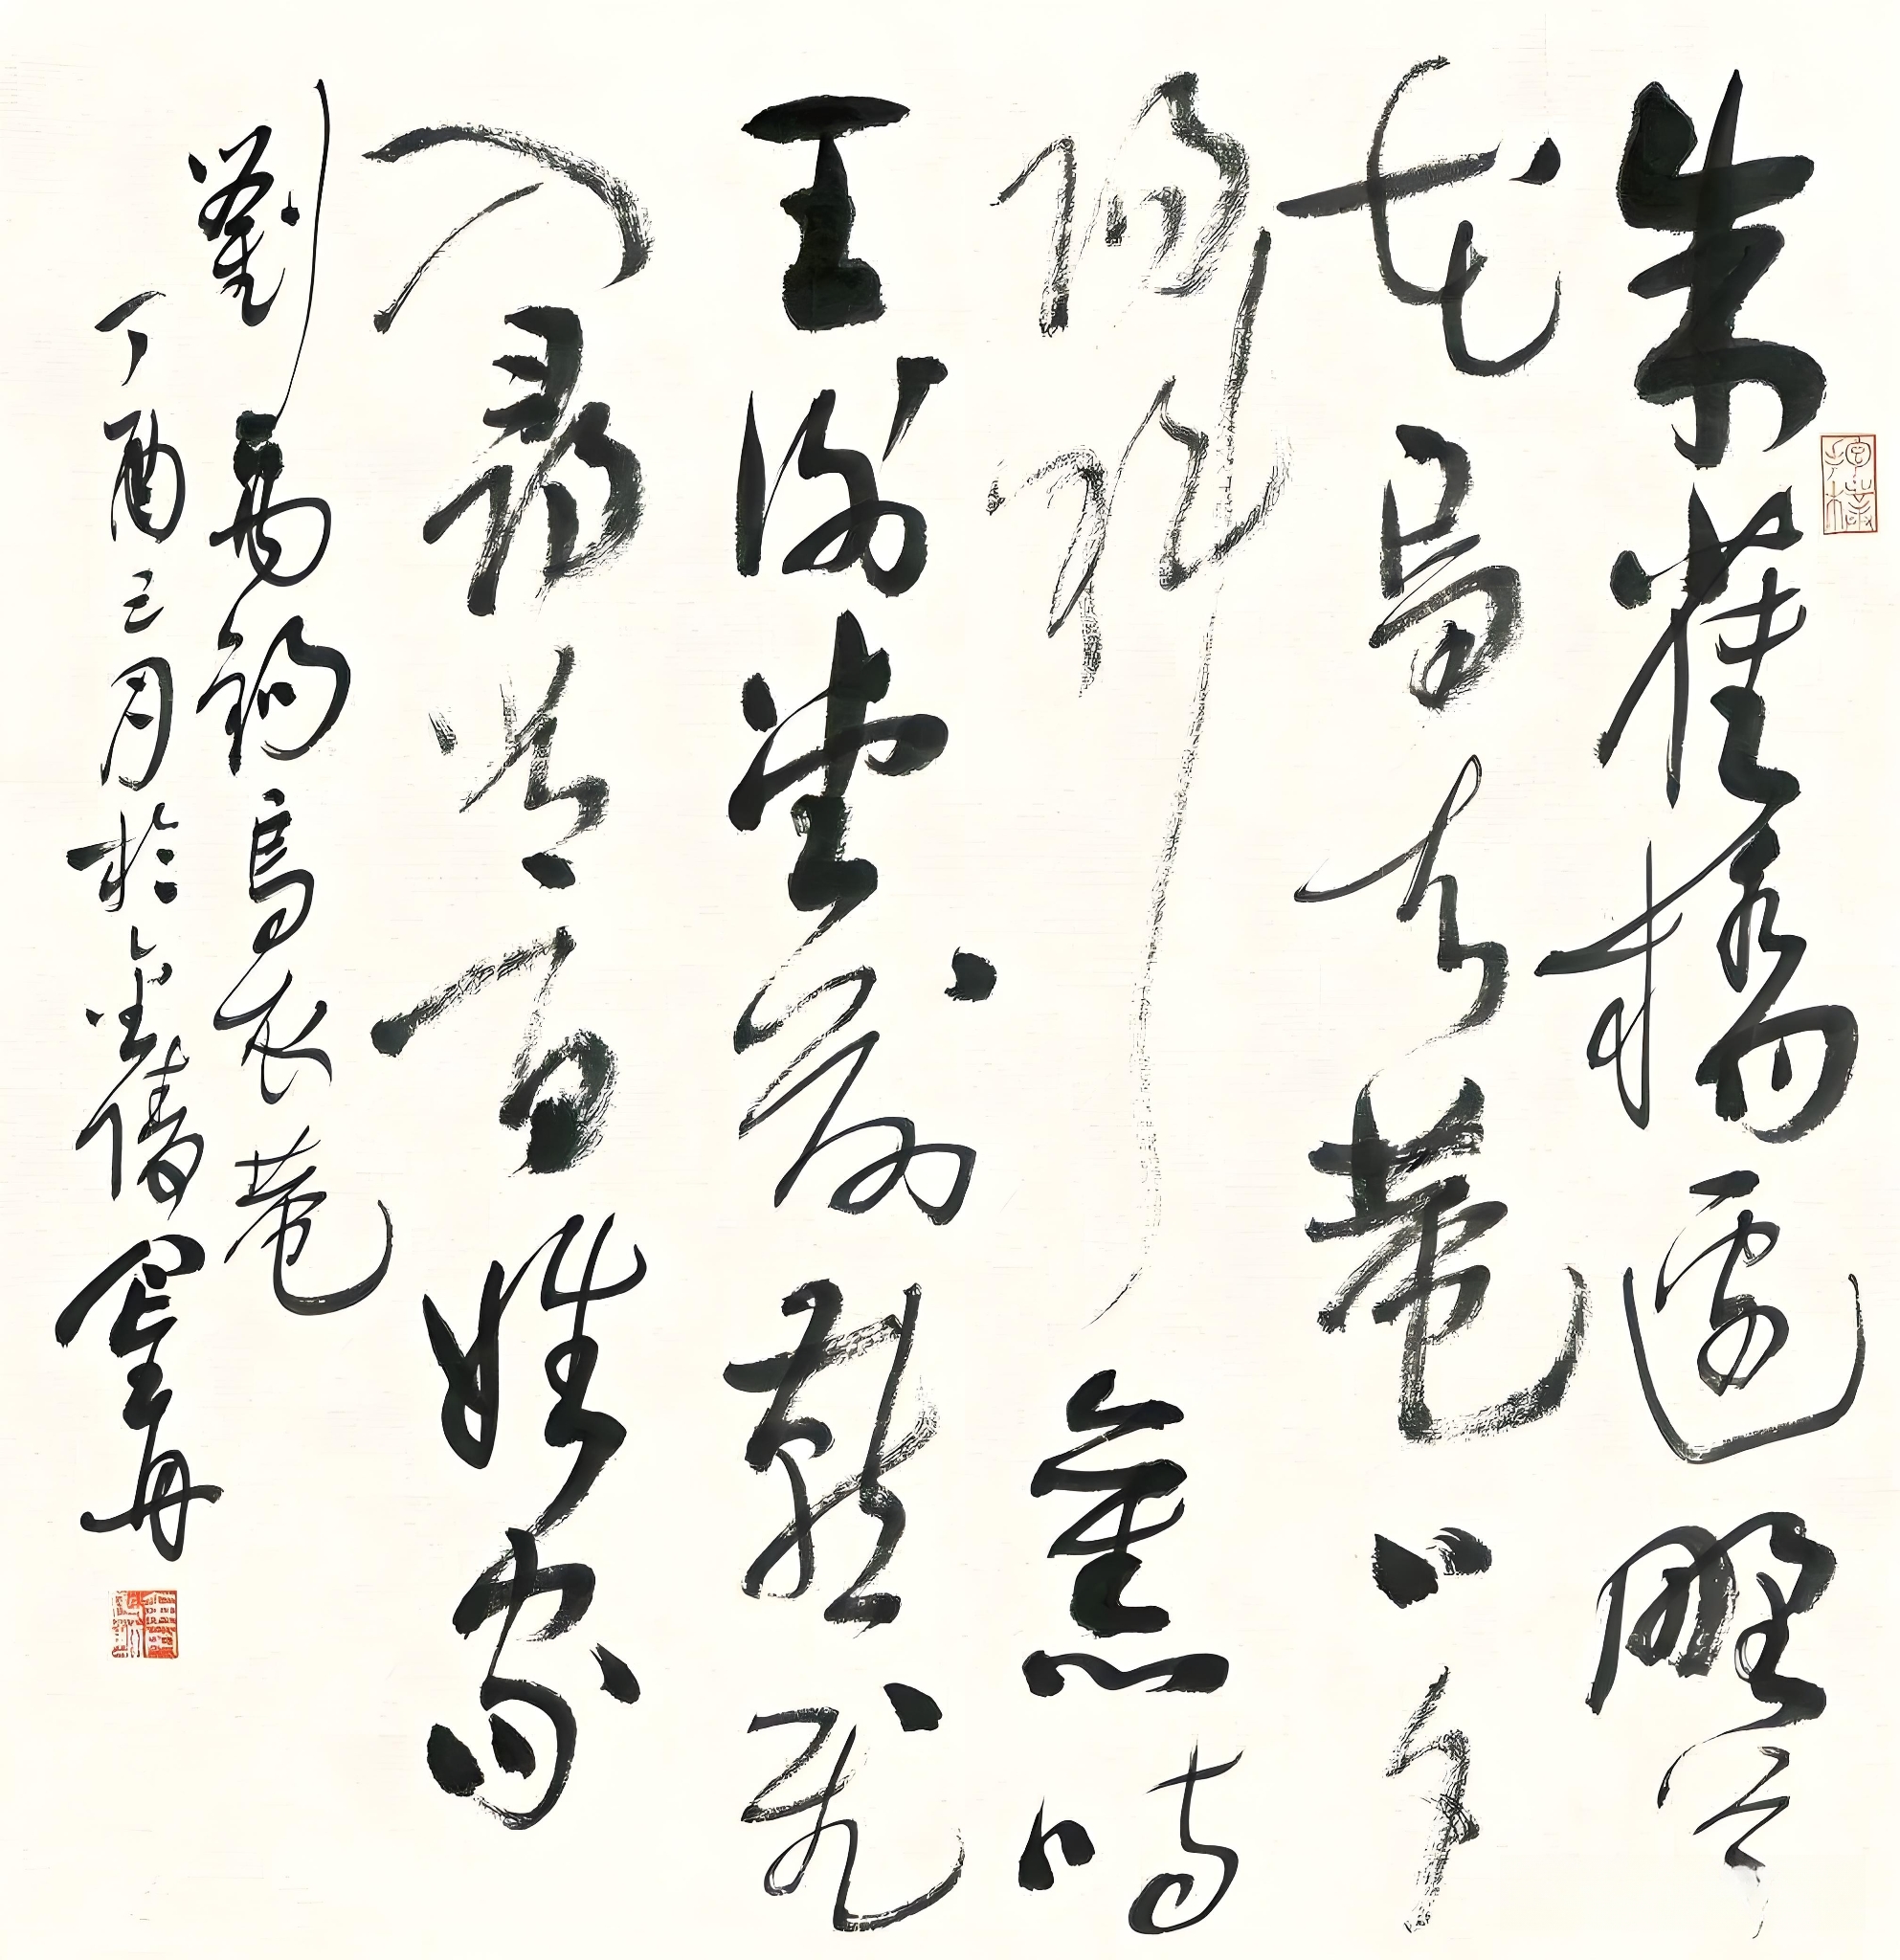 朱雀橋邊野草
花烏衣巷口夕
陽斜舊時
王謝堂前燕飛
入尋常百姓家
劉禹錫烏衣巷
丁酉三月於金